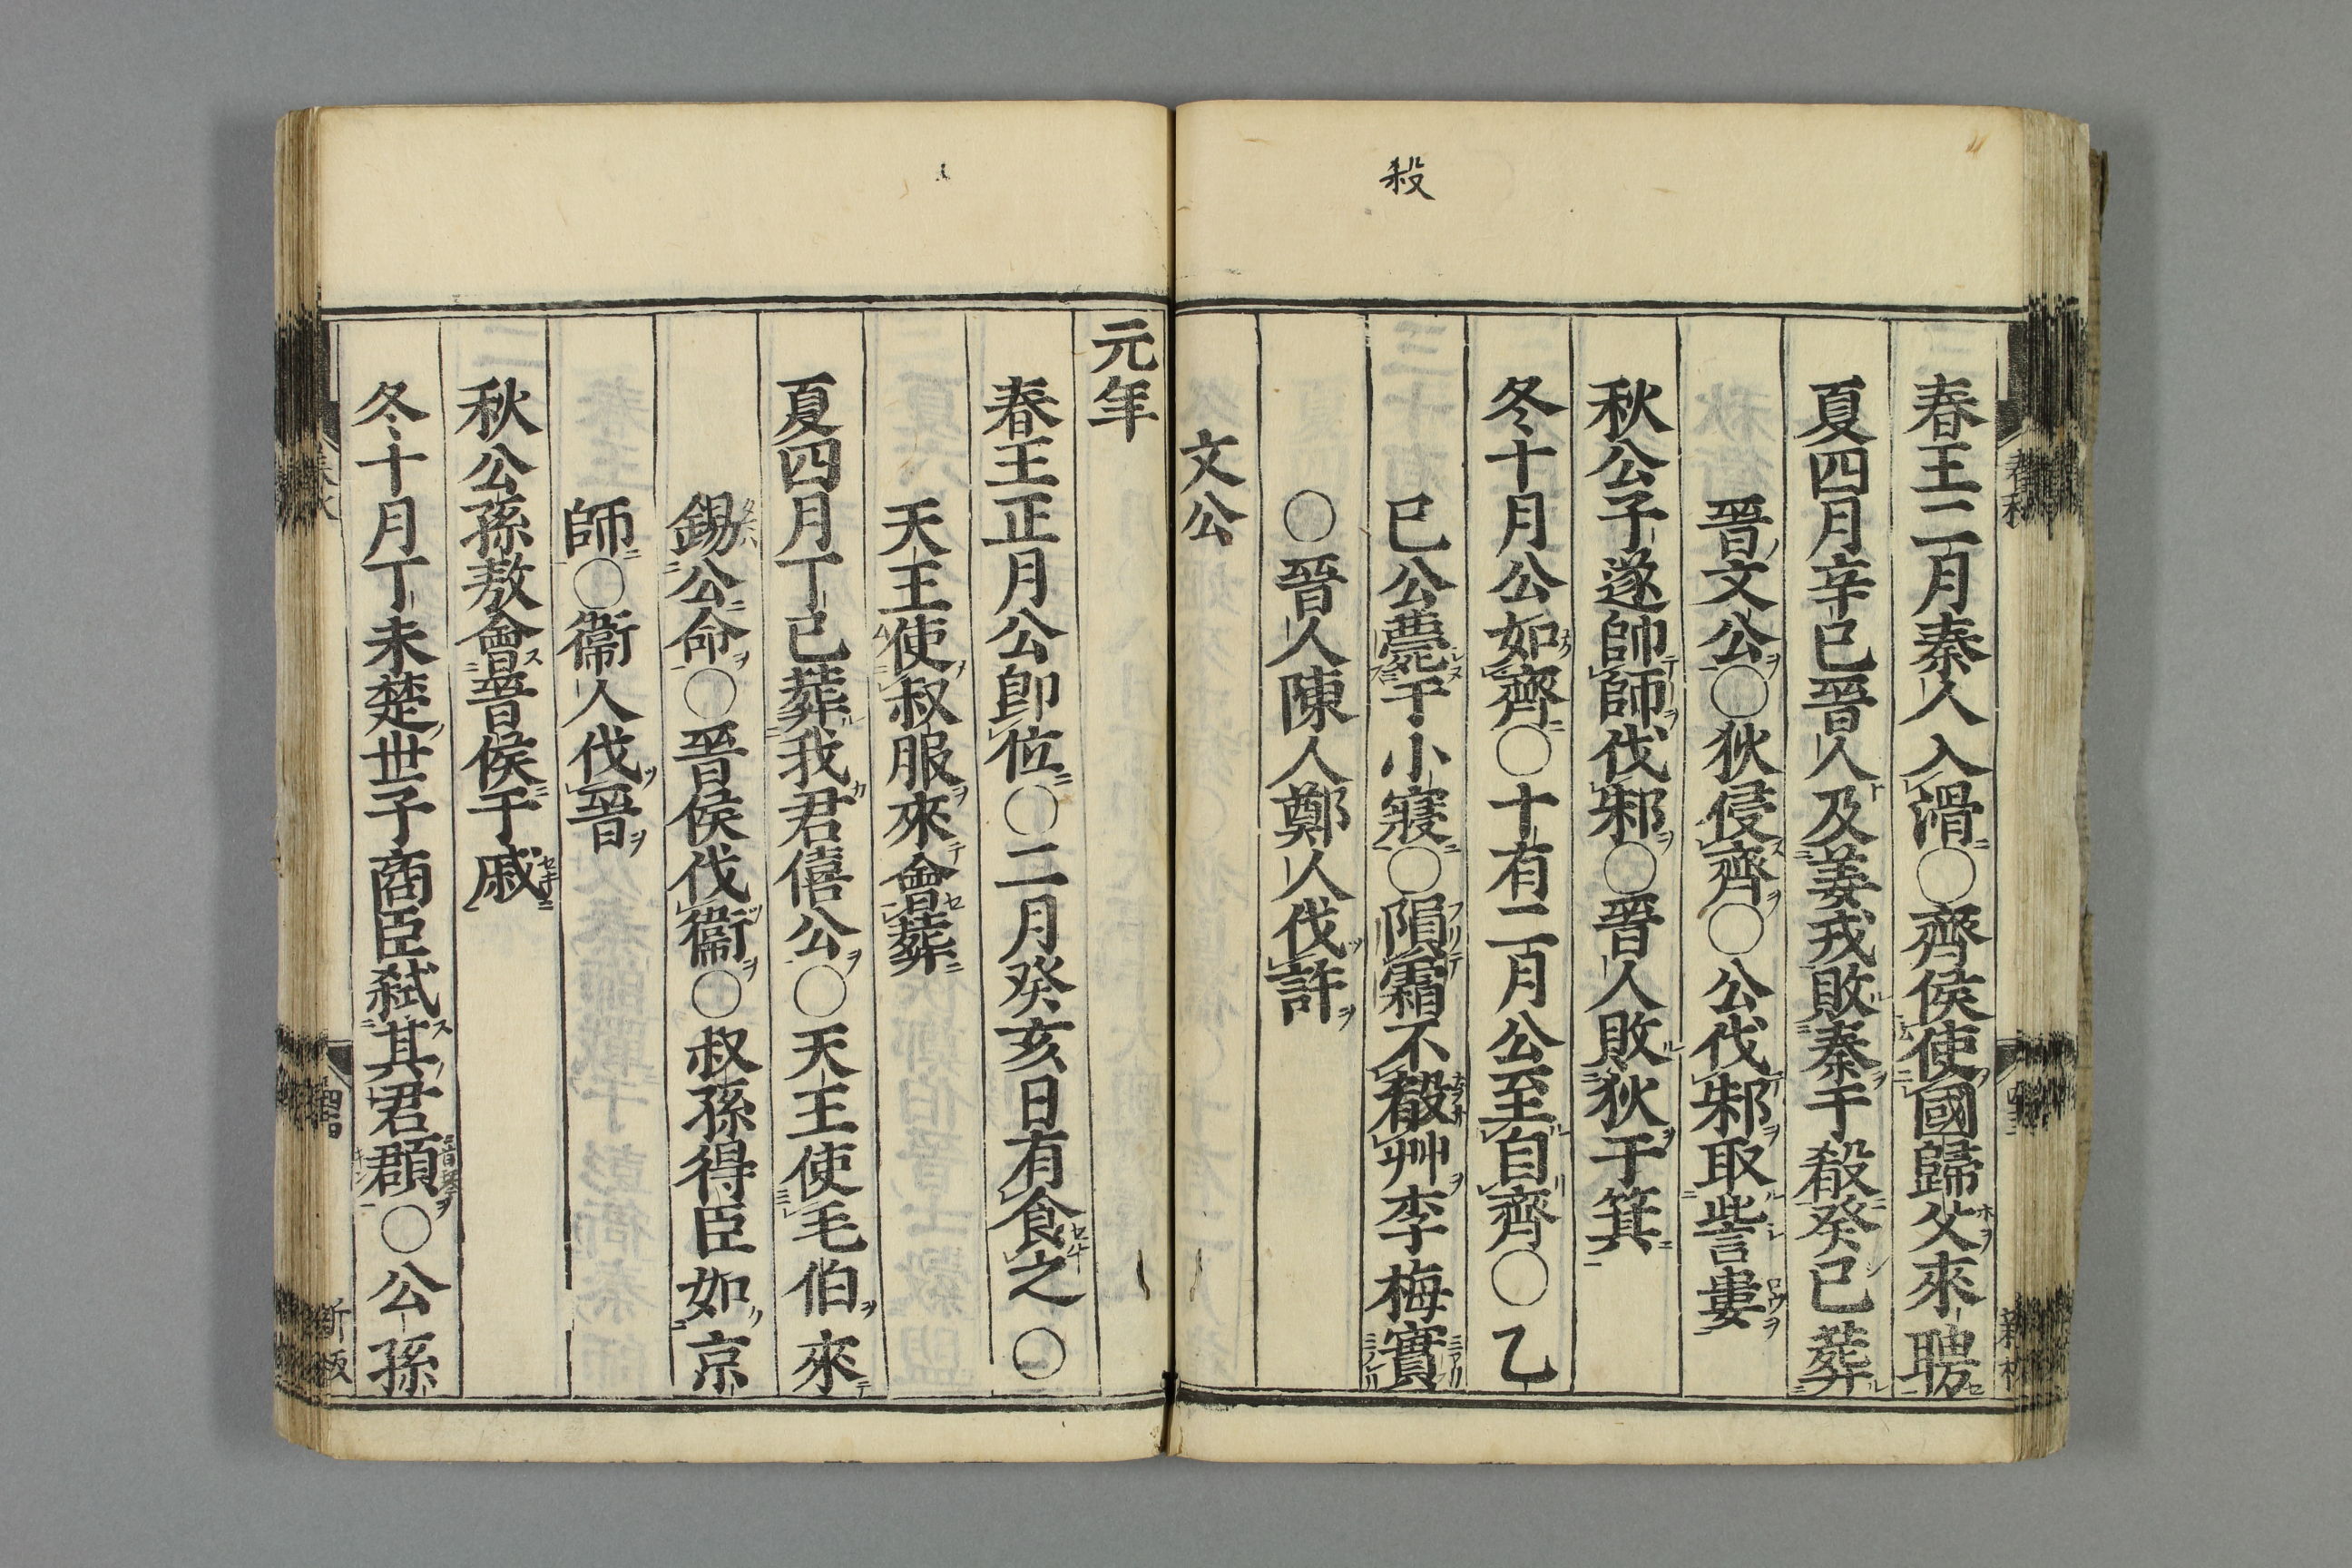 殺
春王二月秦人入滑〇齊侯使國歸父來聘
夏四月辛巳晉人及姜戎敗秦于殽癸巳葬
晉文公〇狄侵齊〇公伐邾取訾婁
秋公子遂帥師伐邾〇晉人敗狄于箕
冬十月公如齊〇十有二月公至自齊〇乙
巳公薨于小寢〇隕霜不殽艸李梅實
〇晉人陳人鄭人伐許
文公
元年
春王正月公即位〇二月癸亥日有食之〇
天王使叔服來會葬
夏四月丁巳葬我君僖公〇天王使毛伯來
錫公命〇晉侯伐衞〇叔孫得臣如京
師〇衞人伐晉
秋公孫敖會晉侯于戚
冬十月丁未楚世子商臣弑其君頵〇公孫